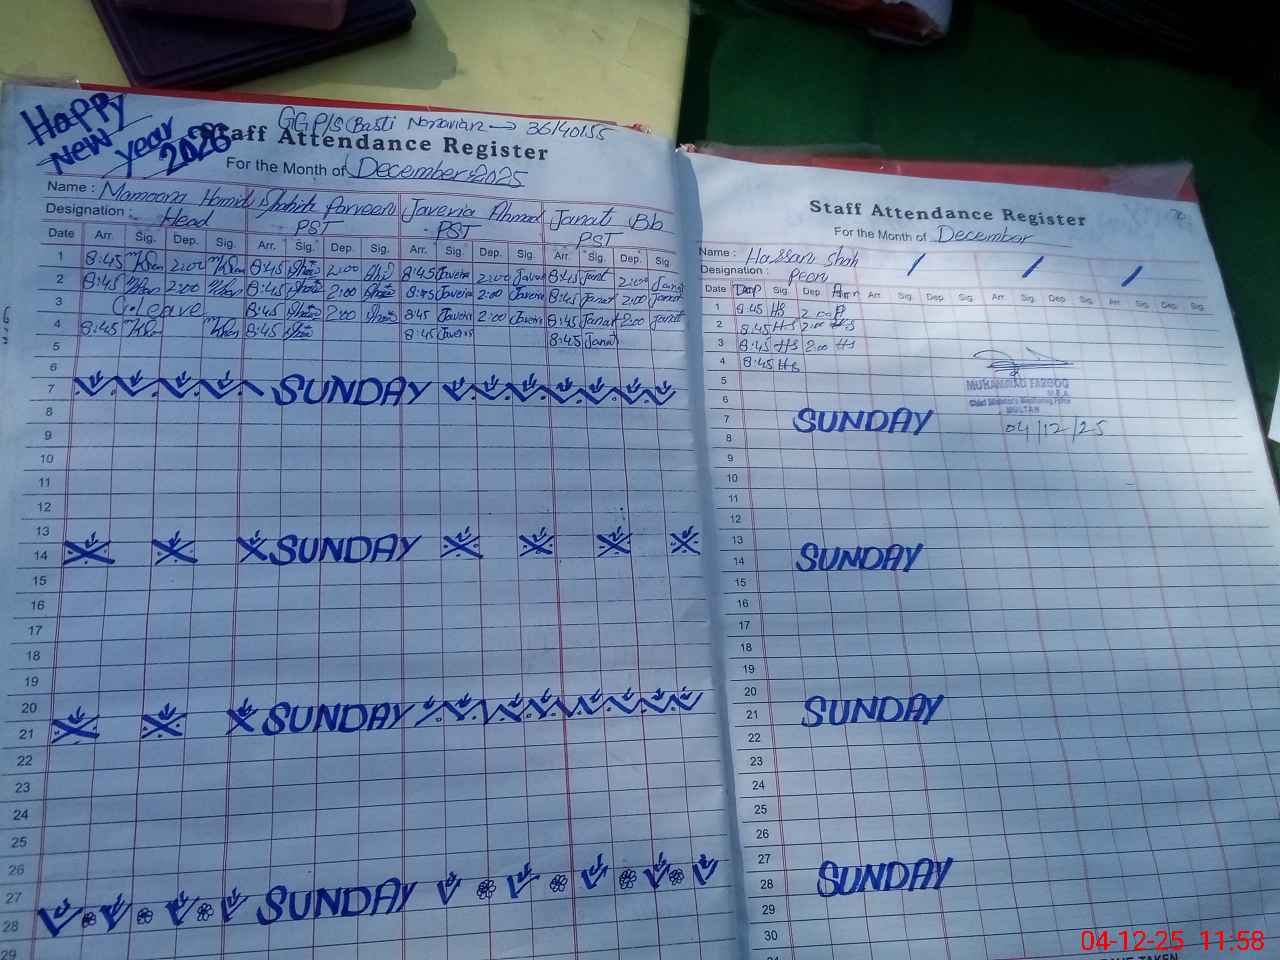 Happy
New
year
2026
GGP/S Basti Nararian → 36/40155
Staff Attendance Register
For the Month of December 2025
Name : Mamoona Hamid Shahida Parveen Javeria Ahmad Janat Bb
Designation : Head PST PST PST
Date Arr. Sig. Dep. Sig. Arr. Sig. Dep. Sig. Arr. Sig. Dep. Sig. Arr. Sig. Dep. Sig.
1 8:45 2:00 8:45 2:00 8:45 Javeria 2:00 Javeria 8:45 Janat 2:00 Janat
2 8:45 2:00 8:45 2:00 8:45 Javeria 2:00 Javeria 8:45 Janat 2:00 Janat
3 C.Leave 8:45 2:00 8:45 Javeria 2:00 Javeria 8:45 Janat 2:00 Janat
4 8:45 8:45 8:45 Javeria 8:45 Janat
5
6
7 SUNDAY
8
9
10
11
12
13
14 SUNDAY
15
16
17
18
19
20
21 SUNDAY
22
23
24
25
26
27
28 SUNDAY
29
Staff Attendance Register
For the Month of December
Name : Hassan Shah
Designation : Peon
Date Sig. Dep. Arr. Sig. Dep. Sig. Arr. Sig. Dep. Sig. Arr. Sig. Dep. Sig.
1 8:45 HS 2:00
2 8:45 HS 2:00 HS
3 8:45 HS 2:00 HS
4 8:45 HS
5
6
7 SUNDAY
8
9
10
11
12
13
14 SUNDAY
15
16
17
18
19
20
21 SUNDAY
22
23
24
25
26
27
28 SUNDAY
29
30
MUHAMMAD FAROOQ
M.E.A
Chief Minister's Monitoring Force
MULTAN
04/12/25
04-12-25 11:58